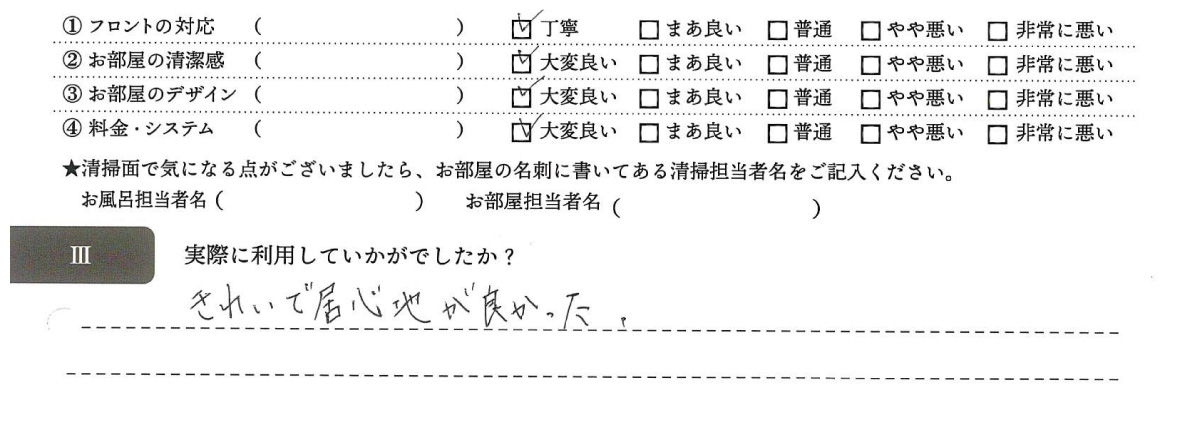 ① フロントの対応 ( ) ☑ 丁寧 □ まあ良い □ 普通 □ やや悪い □ 非常に悪い
② お部屋の清潔感 ( ) ☑ 大変良い □ まあ良い □ 普通 □ やや悪い □ 非常に悪い
③ お部屋のデザイン ( ) ☑ 大変良い □ まあ良い □ 普通 □ やや悪い □ 非常に悪い
④ 料金・システム ( ) ☑ 大変良い □ まあ良い □ 普通 □ やや悪い □ 非常に悪い
★清掃面で気になる点がございましたら、お部屋の名刺に書いてある清掃担当者名をご記入ください。
お風呂担当者名 ( ) お部屋担当者名 ( )
Ⅲ 実際に利用していかがでしたか？
きれいで居心地が良かった。